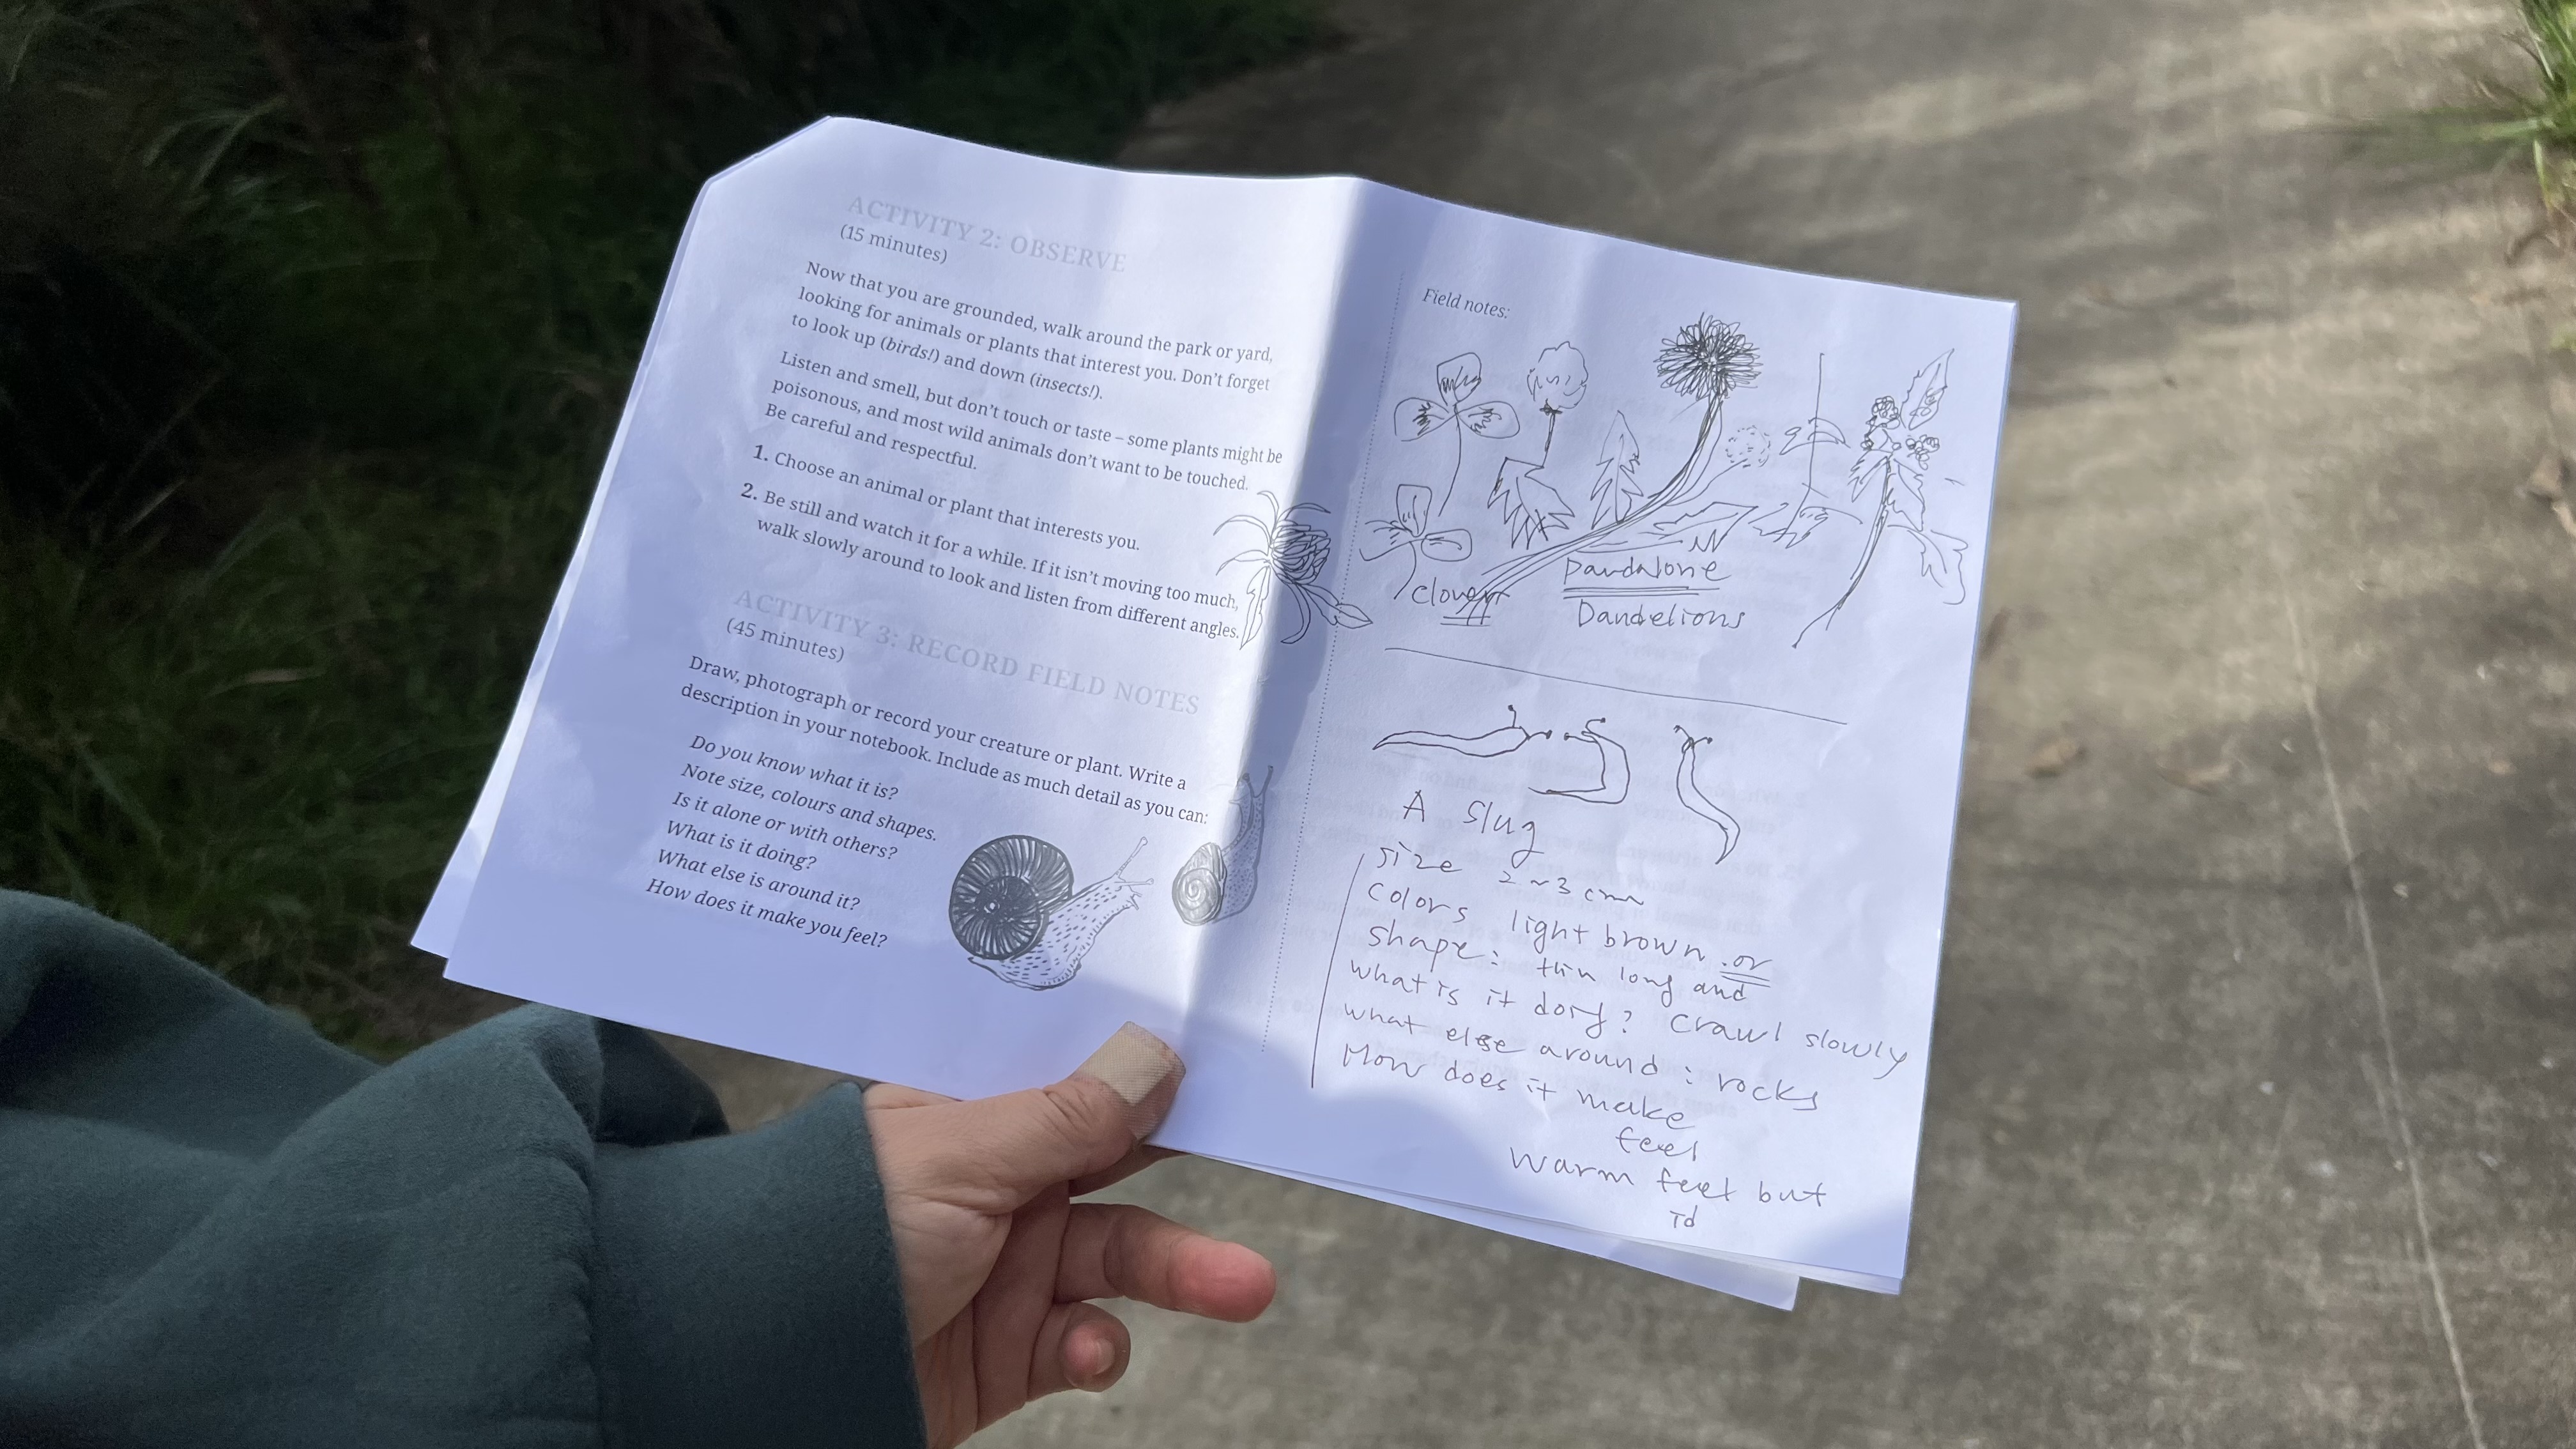 ACTIVITY 2: OBSERVE
(15 minutes)
Now that you are grounded, walk around the park or yard,
looking for animals or plants that interest you. Don't forget
to look up (birds!) and down (insects!).
Listen and smell, but don't touch or taste – some plants might be
poisonous, and most wild animals don't want to be touched.
Be careful and respectful.
1. Choose an animal or plant that interests you.
2. Be still and watch it for a while. If it isn't moving too much,
walk slowly around to look and listen from different angles.
ACTIVITY 3: RECORD FIELD NOTES
(45 minutes)
Draw, photograph or record your creature or plant. Write a
description in your notebook. Include as much detail as you can:
Do you know what it is?
Note size, colours and shapes.
Is it alone or with others?
What is it doing?
What else is around it?
How does it make you feel?
Field notes:
clover
Dandalone
Dandelions
A Slug
size 2~3 cm
colors light brown or
shape: thin long and
what is it doing? crawl slowly
what else around: rocks
How does it make
feel
warm feel but